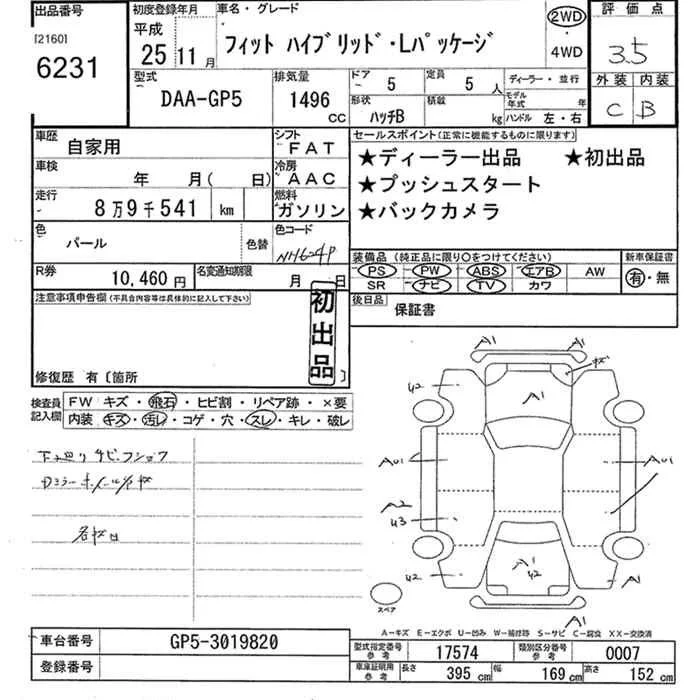 出品番号
[2160]
6231
初度登録年月
平成
25 11月
車名・グレード
フィット ハイブリッド・Lパッケージ
2WD
・
4WD
評価点
3.5
外装 内装
C B
型式
DAA-GP5
排気量
1496
CC
ドア 5
定員 5 人
形状 ハッチB
積載 kg
ディーラー・並行
モデル年式 年
ハンドル 左・右
車歴 自家用
シフト FAT
車検 年 月( 日)
冷房 AAC
走行 8万9千541 km
燃料 ガソリン
色 パール 色替
色コード NH624P
R券 10,460円
名変通知期限 月 日
セールスポイント(正常に機能するものに限ります)
★ディーラー出品 ★初出品
★プッシュスタート
★バックカメラ
装備品 (純正品に限り○をつけてください)
PS PW ABS エアB AW
SR ナビ TV カワ
新車保証書
有・無
後日品 保証書
注意事項申告欄(不具合内容等は具体的に記入して下さい)
初出品
修復歴 有〔箇所 〕
検査員記入欄
FW キズ・飛石・ヒビ割・リペア跡・×要
内装 キズ・汚レ・コゲ・穴・スレ・キレ・破レ
下廻りサビ・フショク
A1 A1
A1
U2
A01 A01
A2
U3
A1
U2 U2
A1
A1
スペア
A-キズ E-エクボ U-凹み W-補修跡 S-サビ C-腐食 XX-交換済
車台番号 GP5-3019820
登録番号
型式指定番号 参考 17574
類別区分番号 参考 0007
車庫証明用 参考 長さ 395 cm 幅 169 cm 高さ 152 cm